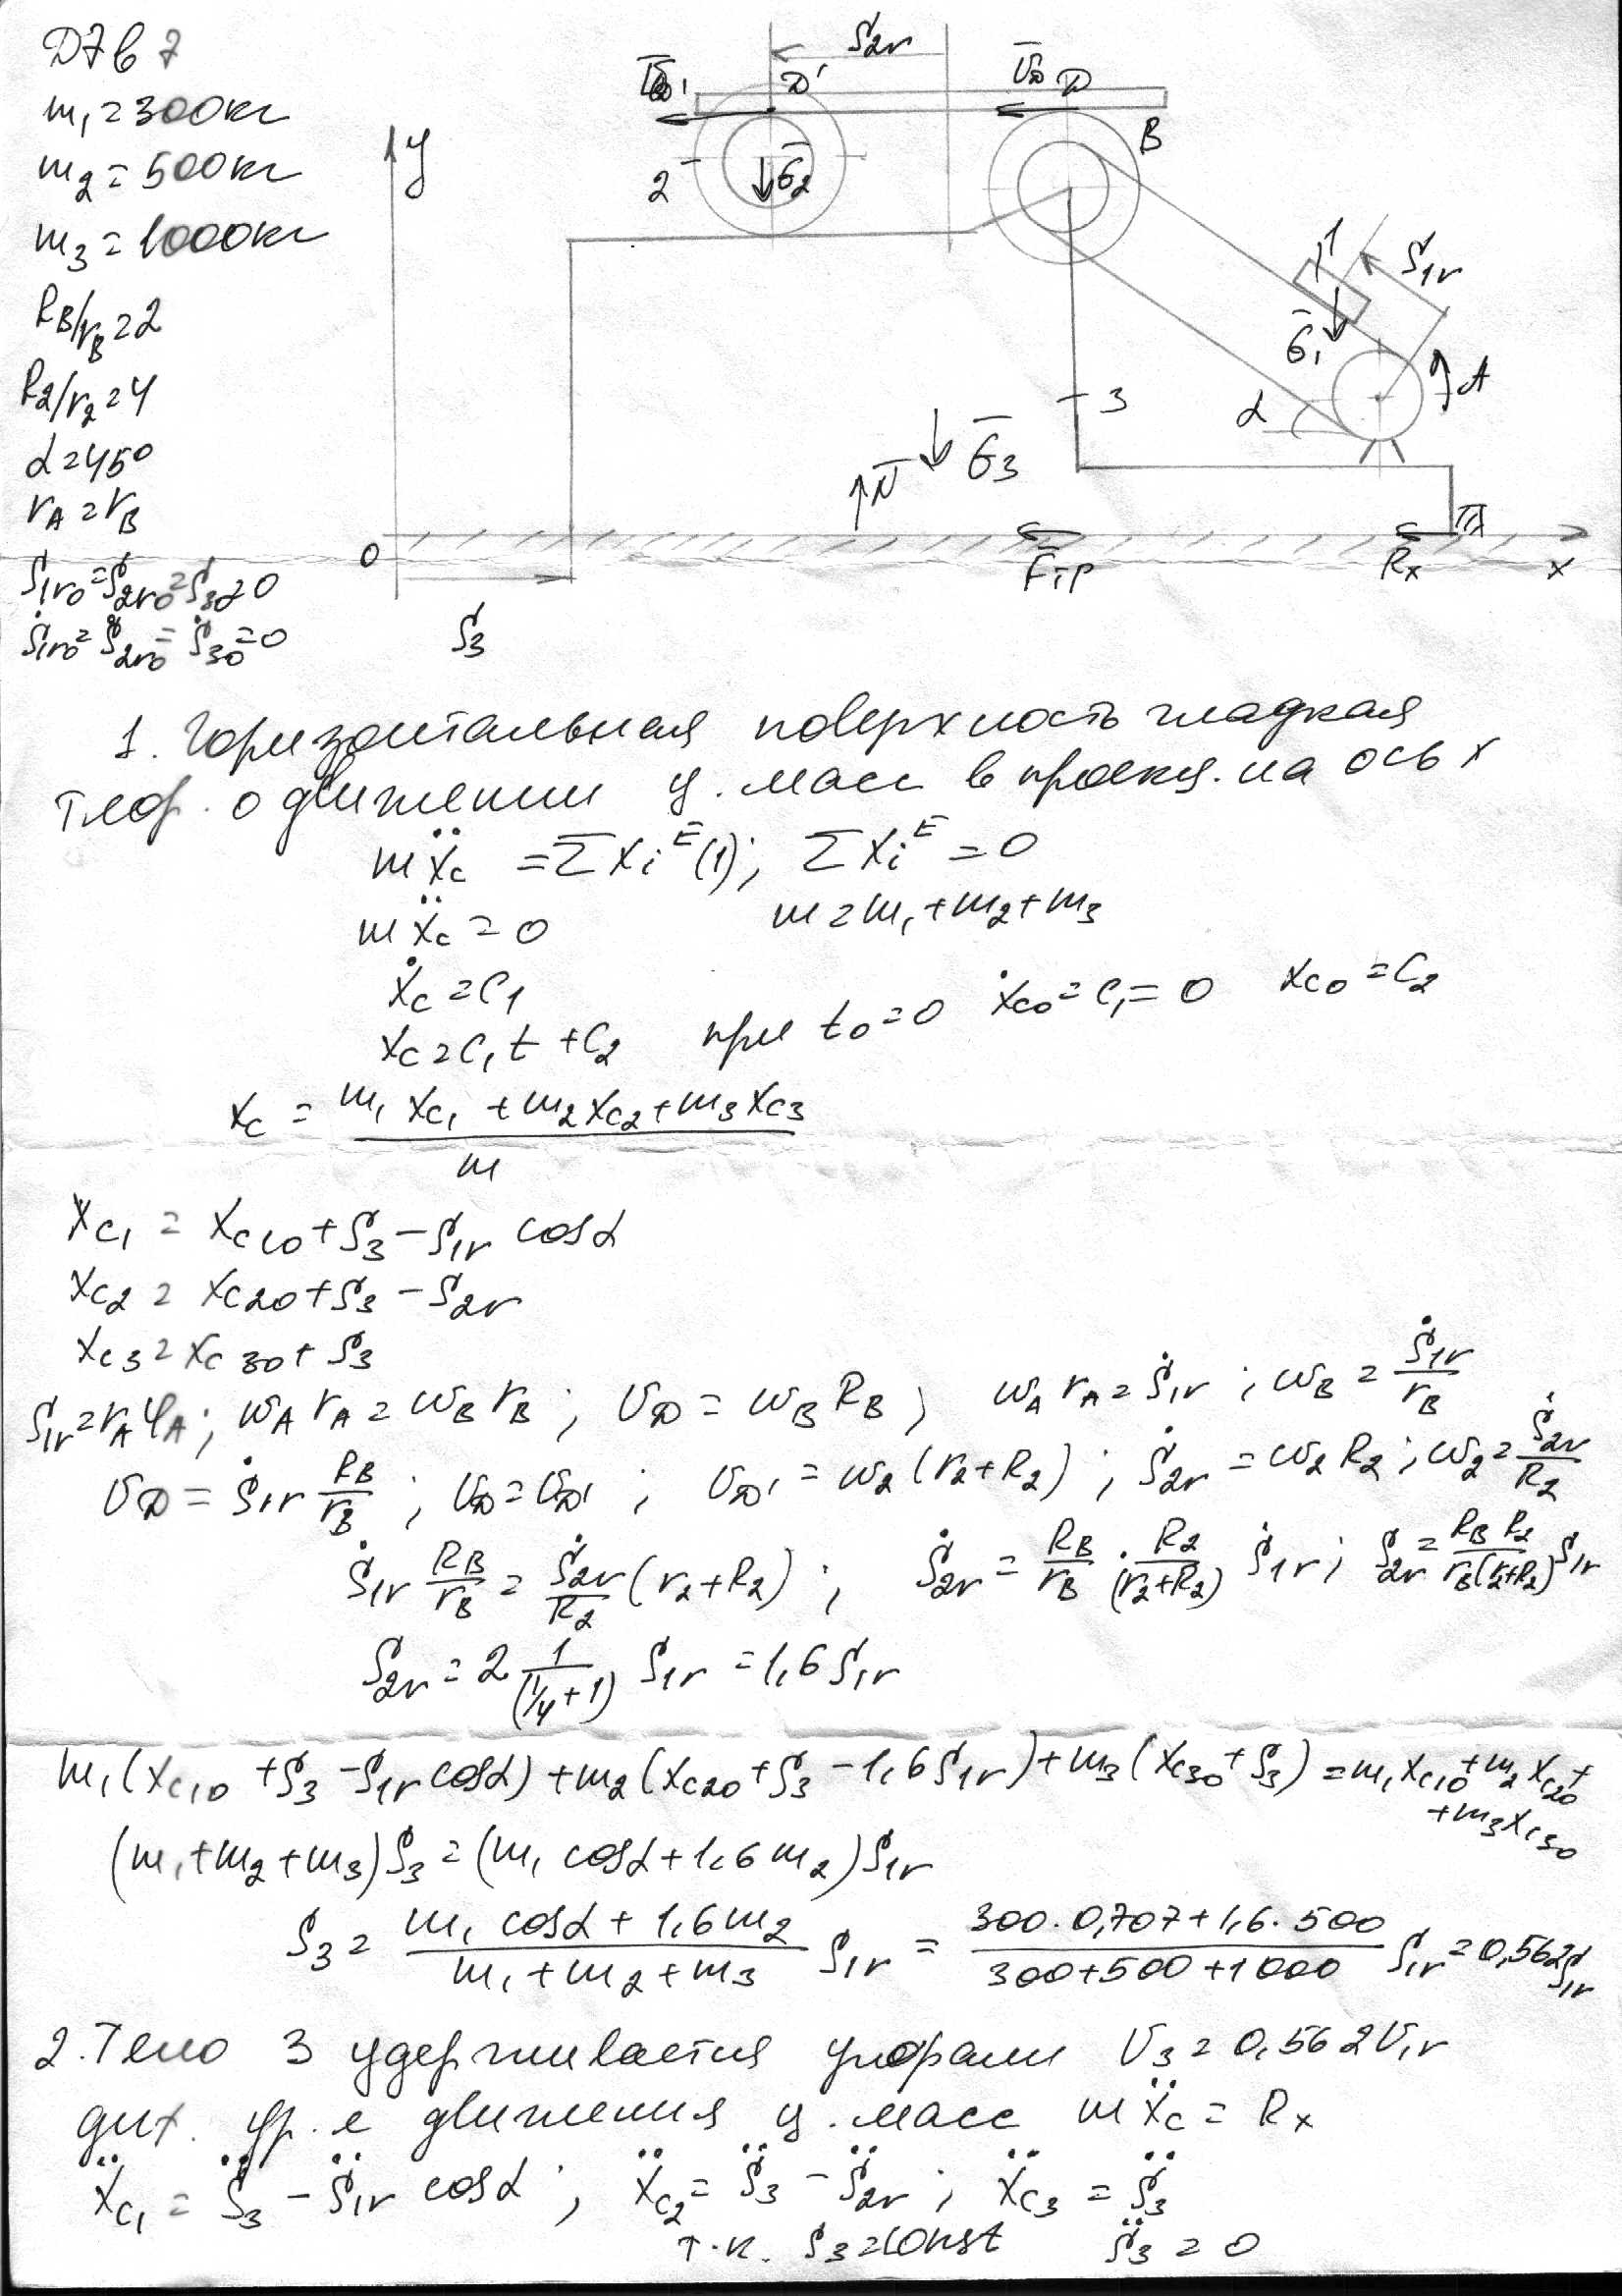 Д7 в 7
m₁ = 300 кг
m₂ = 500 кг
m₃ = 1000 кг
R_B/r_B = 2
R₂/r₂ = 4
α = 45°
r_A = r_B
S₁r₀ = S₂r₀ = S₃₀ = 0
Ṡ₁r₀ = Ṡ₂r₀ = Ṡ₃₀ = 0
y
S₂r
D'
V̄_D
D
B
2
Ḡ₂
1
S₁r
Ḡ₁
A
α
3
N̄
Ḡ₃
0
Fтр
Rₓ
x
S₃
1. Горизонтальная поверхность гладкая
Теор. о движении ц. масс в проекц. на ось x
mẍc = ΣXᵢᴱ (1); ΣXᵢᴱ = 0
mẍc = 0 m = m₁ + m₂ + m₃
ẋc = C₁
xc = C₁t + C₂ при t₀ = 0 ẋc₀ = C₁ = 0 xc₀ = C₂
xc = (m₁xc₁ + m₂xc₂ + m₃xc₃) / m
xc₁ = xc₁₀ + S₃ − S₁r cosα
xc₂ = xc₂₀ + S₃ − S₂r
xc₃ = xc₃₀ + S₃
S₁r = r_A φ_A; ω_A r_A = ω_B r_B; V_D = ω_B R_B; ω_A r_A = Ṡ₁r; ω_B = Ṡ₁r / r_B
V_D = Ṡ₁r R_B/r_B; V_D = V_D'; V_D' = ω₂(r₂ + R₂); Ṡ₂r = ω₂R₂; ω₂ = Ṡ₂r / R₂
Ṡ₁r R_B/r_B = Ṡ₂r/R₂ (r₂ + R₂); Ṡ₂r = R_B/r_B · R₂/(r₂ + R₂) Ṡ₁r; S₂r = R_B R₂ / r_B(r₂ + R₂) S₁r
S₂r = 2 1/(1/4 + 1) S₁r = 1,6 S₁r
m₁(xc₁₀ + S₃ − S₁r cosα) + m₂(xc₂₀ + S₃ − 1,6 S₁r) + m₃(xc₃₀ + S₃) = m₁xc₁₀ + m₂xc₂₀ +
+ m₃xc₃₀
(m₁ + m₂ + m₃)S₃ = (m₁ cosα + 1,6 m₂)S₁r
S₃ = (m₁ cosα + 1,6 m₂)/(m₁ + m₂ + m₃) S₁r = (300 · 0,707 + 1,6 · 500)/(300 + 500 + 1000) S₁r = 0,562 S₁r
2. Тело 3 удерживается упорами V₃ = 0,562 V₁r
диф. ур. е движения ц. масс mẍc = Rₓ
ẍc₁ = S̈₃ − S̈₁r cosα; ẍc₂ = S̈₃ − S̈₂r; ẍc₃ = S̈₃
т.к. S₃ = const S̈₃ = 0